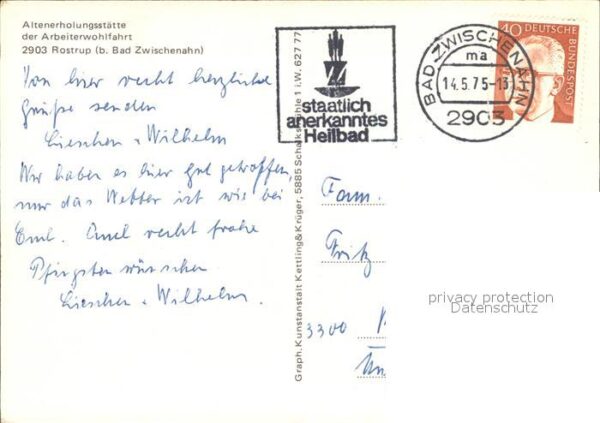 Altenerholungsstätte
der Arbeiterwohlfahrt
2903 Rostrup (b. Bad Zwischenahn)
Von hier recht herzliche
Grüße senden
Lieschen u. Wilhelm
Wir haben es hier gut getroffen,
nur das Wetter ist wie bei
Euch. Auch recht frohe
Pfingsten wünschen
Lieschen u. Wilhelm.
Graph. Kunstanstalt Kettling & Krüger, 5885 Schalksmühle 1 i.W. 627 77
staatlich
anerkanntes
Heilbad
BAD ZWISCHENAHN
ma
14.5.75-13
2903
40 DEUTSCHE
BUNDESPOST
Fam.
Fritz
3300
privacy protection
Datenschutz